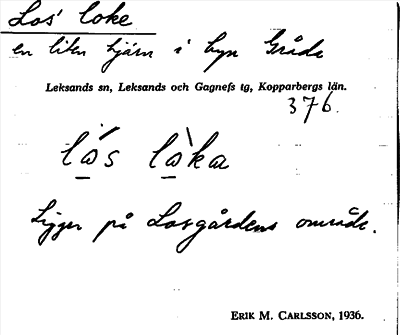 Los' loke
en liten tjärn i byn Gråda
Leksands sn, Leksands och Gagnefs tg, Kopparbergs län.
376.
lo̲s lo̲ka
Ligger på Losgårdens område.
ERIK M. CARLSSON, 1936.